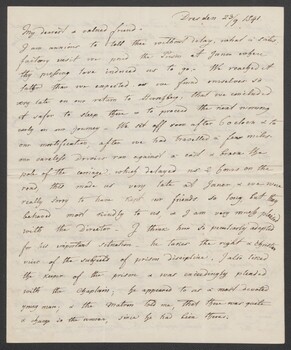 Dresden 23/9 1841
My dearest & valued friend.
I am anxious to tell thee without delay, what a satis
factory visit we paid the Prison at Jauer where
thy pressing love induced us to go. We reached it
later than we expected as we found ourselves so
very late on our return to that we concluded
it safer to sleep there & to proceed the next morning
early on our Journey. We set off soon after 5 o'clock & to
our mortification, after we had travelled a few miles
our careless driver ran against a cart & broke the
pole of the carriage which delayed us 2 hours on the
road this made us very late at Jauer, & we were
really sorry to have kept our friends so long but they
behaved most kindly to us, & I am very much pleased
with the Director. I think him so peculiarly adapted
for his important situation. he takes the right & Christian
view of the subjects of prison discipline. I also liked
the of the prison & was exceedingly pleased
with the Chaplain; he appeared to us a most devoted
young man, & the Matron told me, that there was quite
a change in the women, since he had been there.